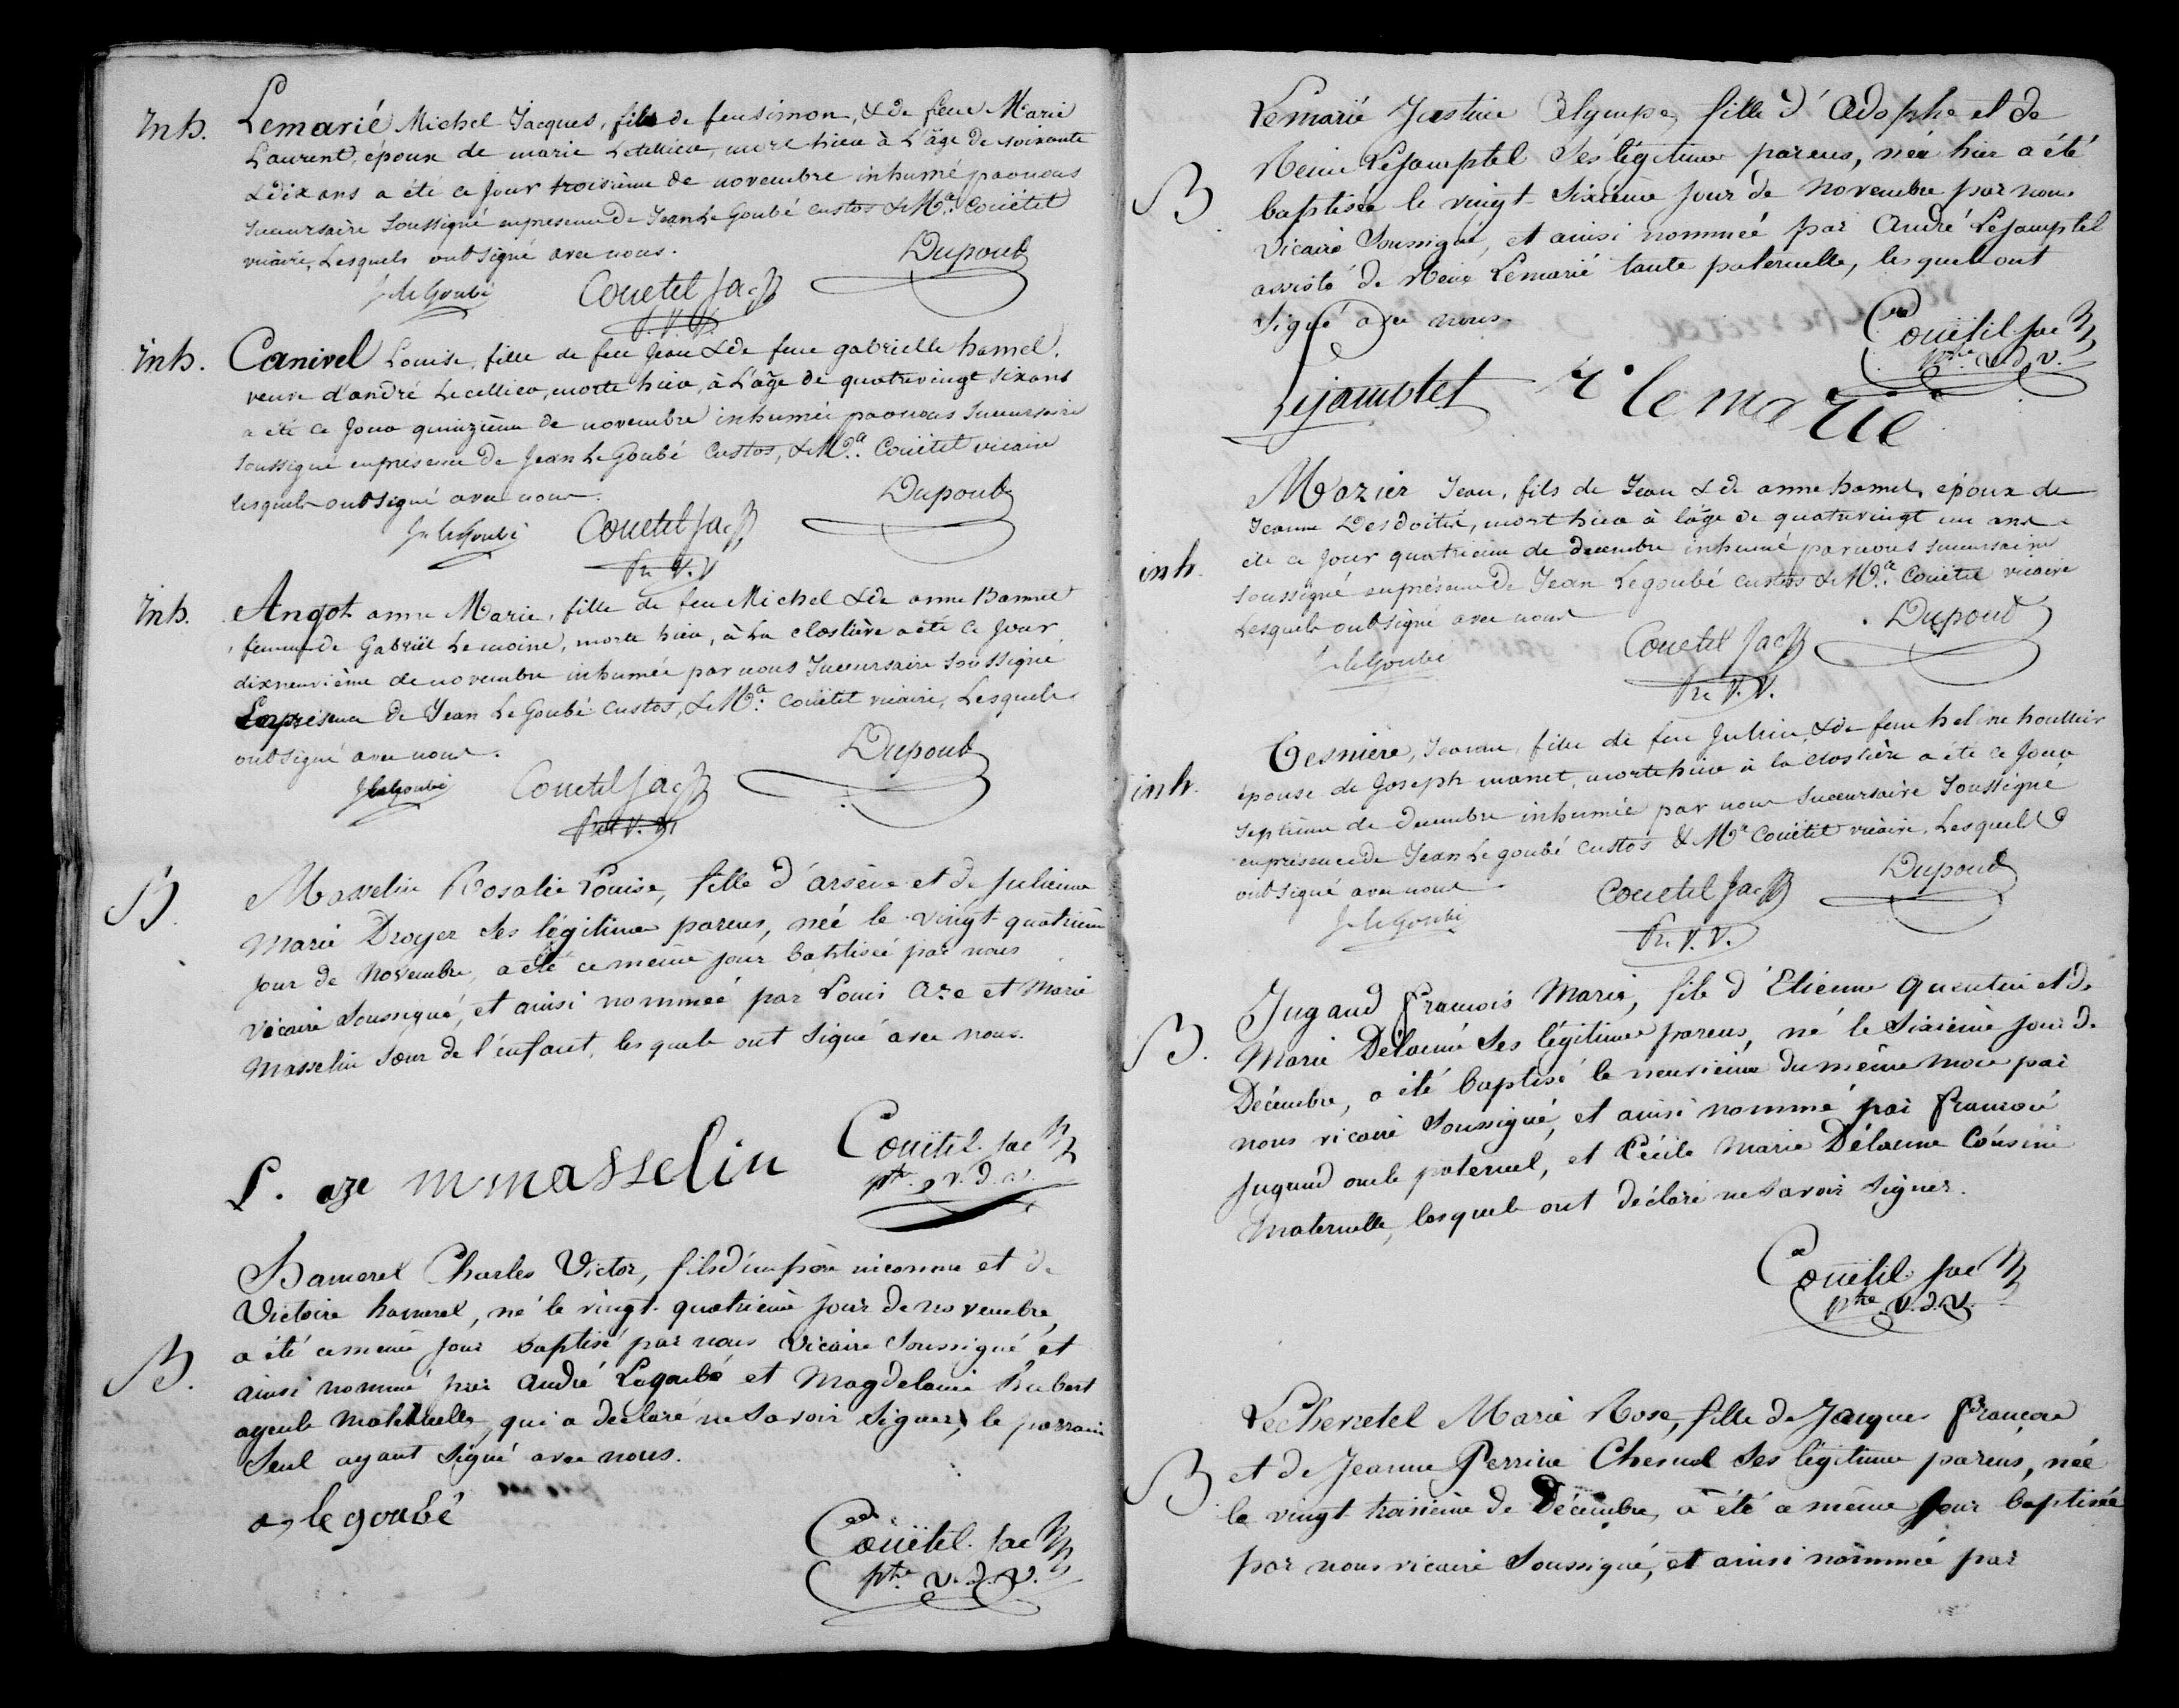 Inh. Lemarié Michel Jacques, fils de feu Simon, & de feue Marie
Laurent, époux de marie Letellier, mort hier à L'âge de soixante
& dix ans a été ce jour troisième de novembre inhumé par nous
succursaire soussigné en presence de Jean Le Goubé custos & Mr. Couëtil
vicaire, Lesquels ont signé avec nous.
Dupont
J. le Goubé Couëtil Jacq
P. V. V.
Inh. Canivel Louise, fille de feu Jean & de feue gabrielle hamel,
veuve d'andré Lecellier, morte hier, à L'âge de quatrevingt six ans
a été ce Jour quinzième de novembre inhumée par nous succursaire
soussigné en présence de Jean Le Goubé Custos, & Mr. Couëtil vicaire
lesquels ont signé avec nous.
Dupont
Jn le Goubé Couëtil Jacq
Pr. V. V
Inh. Angot anne Marie, fille de feu Michel & de anne
femme de Gabriël Lemoine, morte hier, à La closlière a été ce Jour
dixneuvième de novembre inhumée par nous Succursaire soussigné
En présence de Jean Le Goubé Custos, & Mr. Couëtil vicaire, Lesquels
ont signé avec nous.
Dupont
J le Goubé Couëtil Jacq
Pr. V. V
B. Masselin Rosalie Louise, fille d'arsène et de Julienne
Marie Droyer Ses légitimes parens, née le vingt-quatrième
jour de Novembre, a été ce même jour baptisée par nous
Vicaire Soussigné, et ainsi nommée par Louis Aze et Marie
Masselin sœur de l'enfant, lesquels ont Signé avec nous.
L. aze m masselin Couëtil. Jac
ptre. v. d. v.
B. Hamerel Charles Victor, fils d'un père inconnu et de
Victoire hamerel, né le vingt-quatrième jour de novembre,
a été ce même jour baptisé par nous Vicaire Soussigné et
ainsi nommé par André Legoubé et Magdelaine Hubert
ayeule maternelle, qui a déclaré ne Savoir Signer, le parrain
Seul ayant Signé avec nous.
a, le goubé
Couëtil. Jac
ptre v. d. v.
B Lemarié Justine Olympe, fille d'Adophe et de
Reine Lejamptel Ses légitimes parens, née hier a été
baptisée le vingt-Sixième jour de Novembre par nous
Vicaire Soussigné, et ainsi nommée par André Lejamptel
assisté de Reine Lemarié tante paternelle, lesquels ont
Signé avec nous.
Couëtil Jac
ptre v. d. v.
Lejamptel R. lemarié
inh. Mazier Jean, fils de Jean & de anne hamel, époux de
Jeanne Desdoitil, mort hier à l'âge de quatrevingt un ans a
été ce Jour quatrième de decembre inhumé par nous succursaire
soussigné en présence de Jean Legoubé custos & Mr. Couëtil vicaire
Lesquels ont signé avec nous
Dupont
J. le Goubé Couëtil Jacq
Pre V. V.
inh. Tesnière, Jeanne, fille de feu Julien, & de feue helène houllier
épouse de Joseph manet, morte hier à la closlière a été ce Jour
septième de decembre inhumée par nous Succursaire Soussigné
en présence de Jean Legoubé custos & Mr Couëtil vicaire, Lesquels
ont signé avec nous.
Dupont
J. le Goubé Couëtil Jacq
Pr. V. V.
B. Jugand François Marie, fils d'Etienne Quentin et de
Marie Délaune Ses légitimes parens, né le Sixième jour de
Décembre, a été baptisé le neuvième du même mois par
nous vicaire Soussigné, et ainsi nommé par François
Jugand oncle paternel, et Cécile Marie Délaune Cousine
Maternelle, lesquels ont déclaré ne Savoir Signer.
Couëtil Jac
ptre. v. d. v.
B Lecherretel Marie Rose, fille de Jacques François
et de Jeanne Perrine Chesnel Ses légitimes parens, née
le vingt-troisième de Décembre, a été ce même Jour baptisée
par nous vicaire Soussigné, et ainsi nommée par